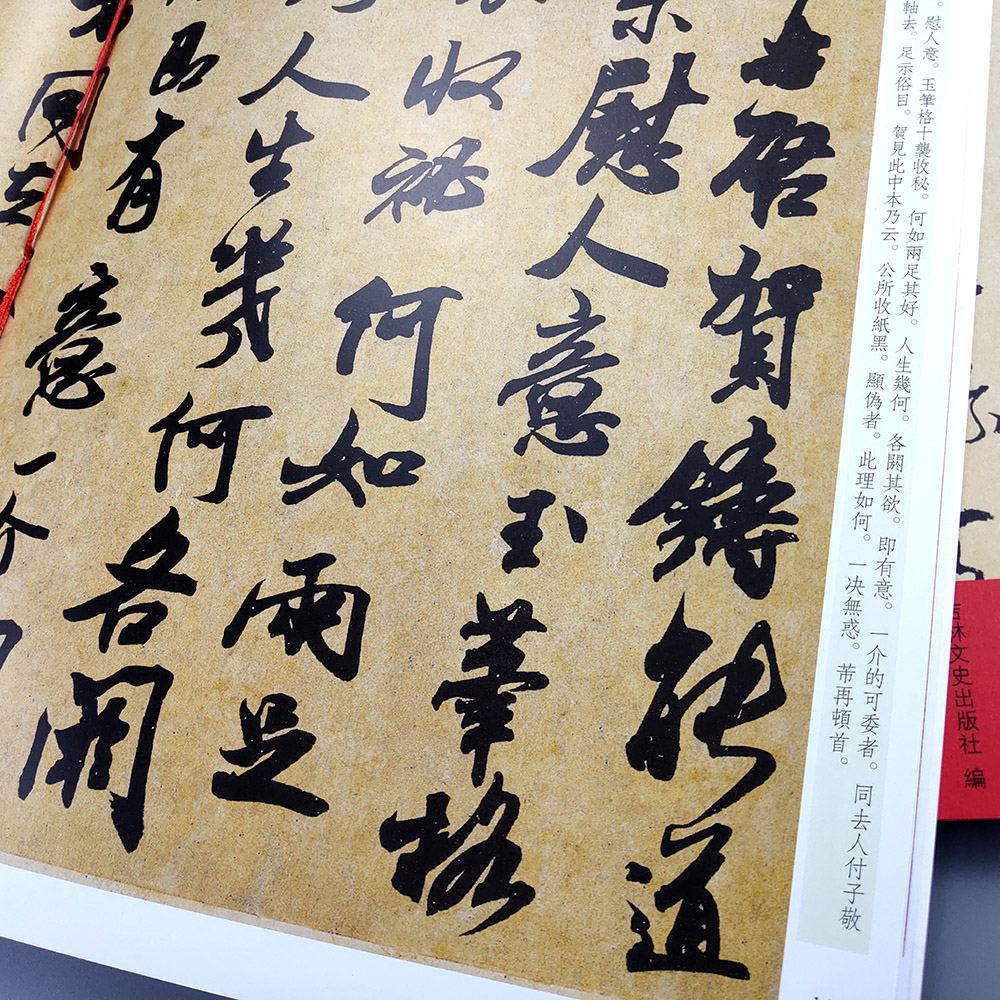 吉林文史出版社 編
慰人意。玉筆格十襲收秘。何如兩足其好。人生幾何。各闕其欲。即有意。一介的可委者。同去人付子敬
軸去。足示俗目。賀見此中本乃云。公所收紙黑。顯偽者。此理如何。一决無惑。芾再頓首。
啓賀鑄能道
慰人意玉筆格
收祕何如兩足
人生幾何各闕
有意一介
同去